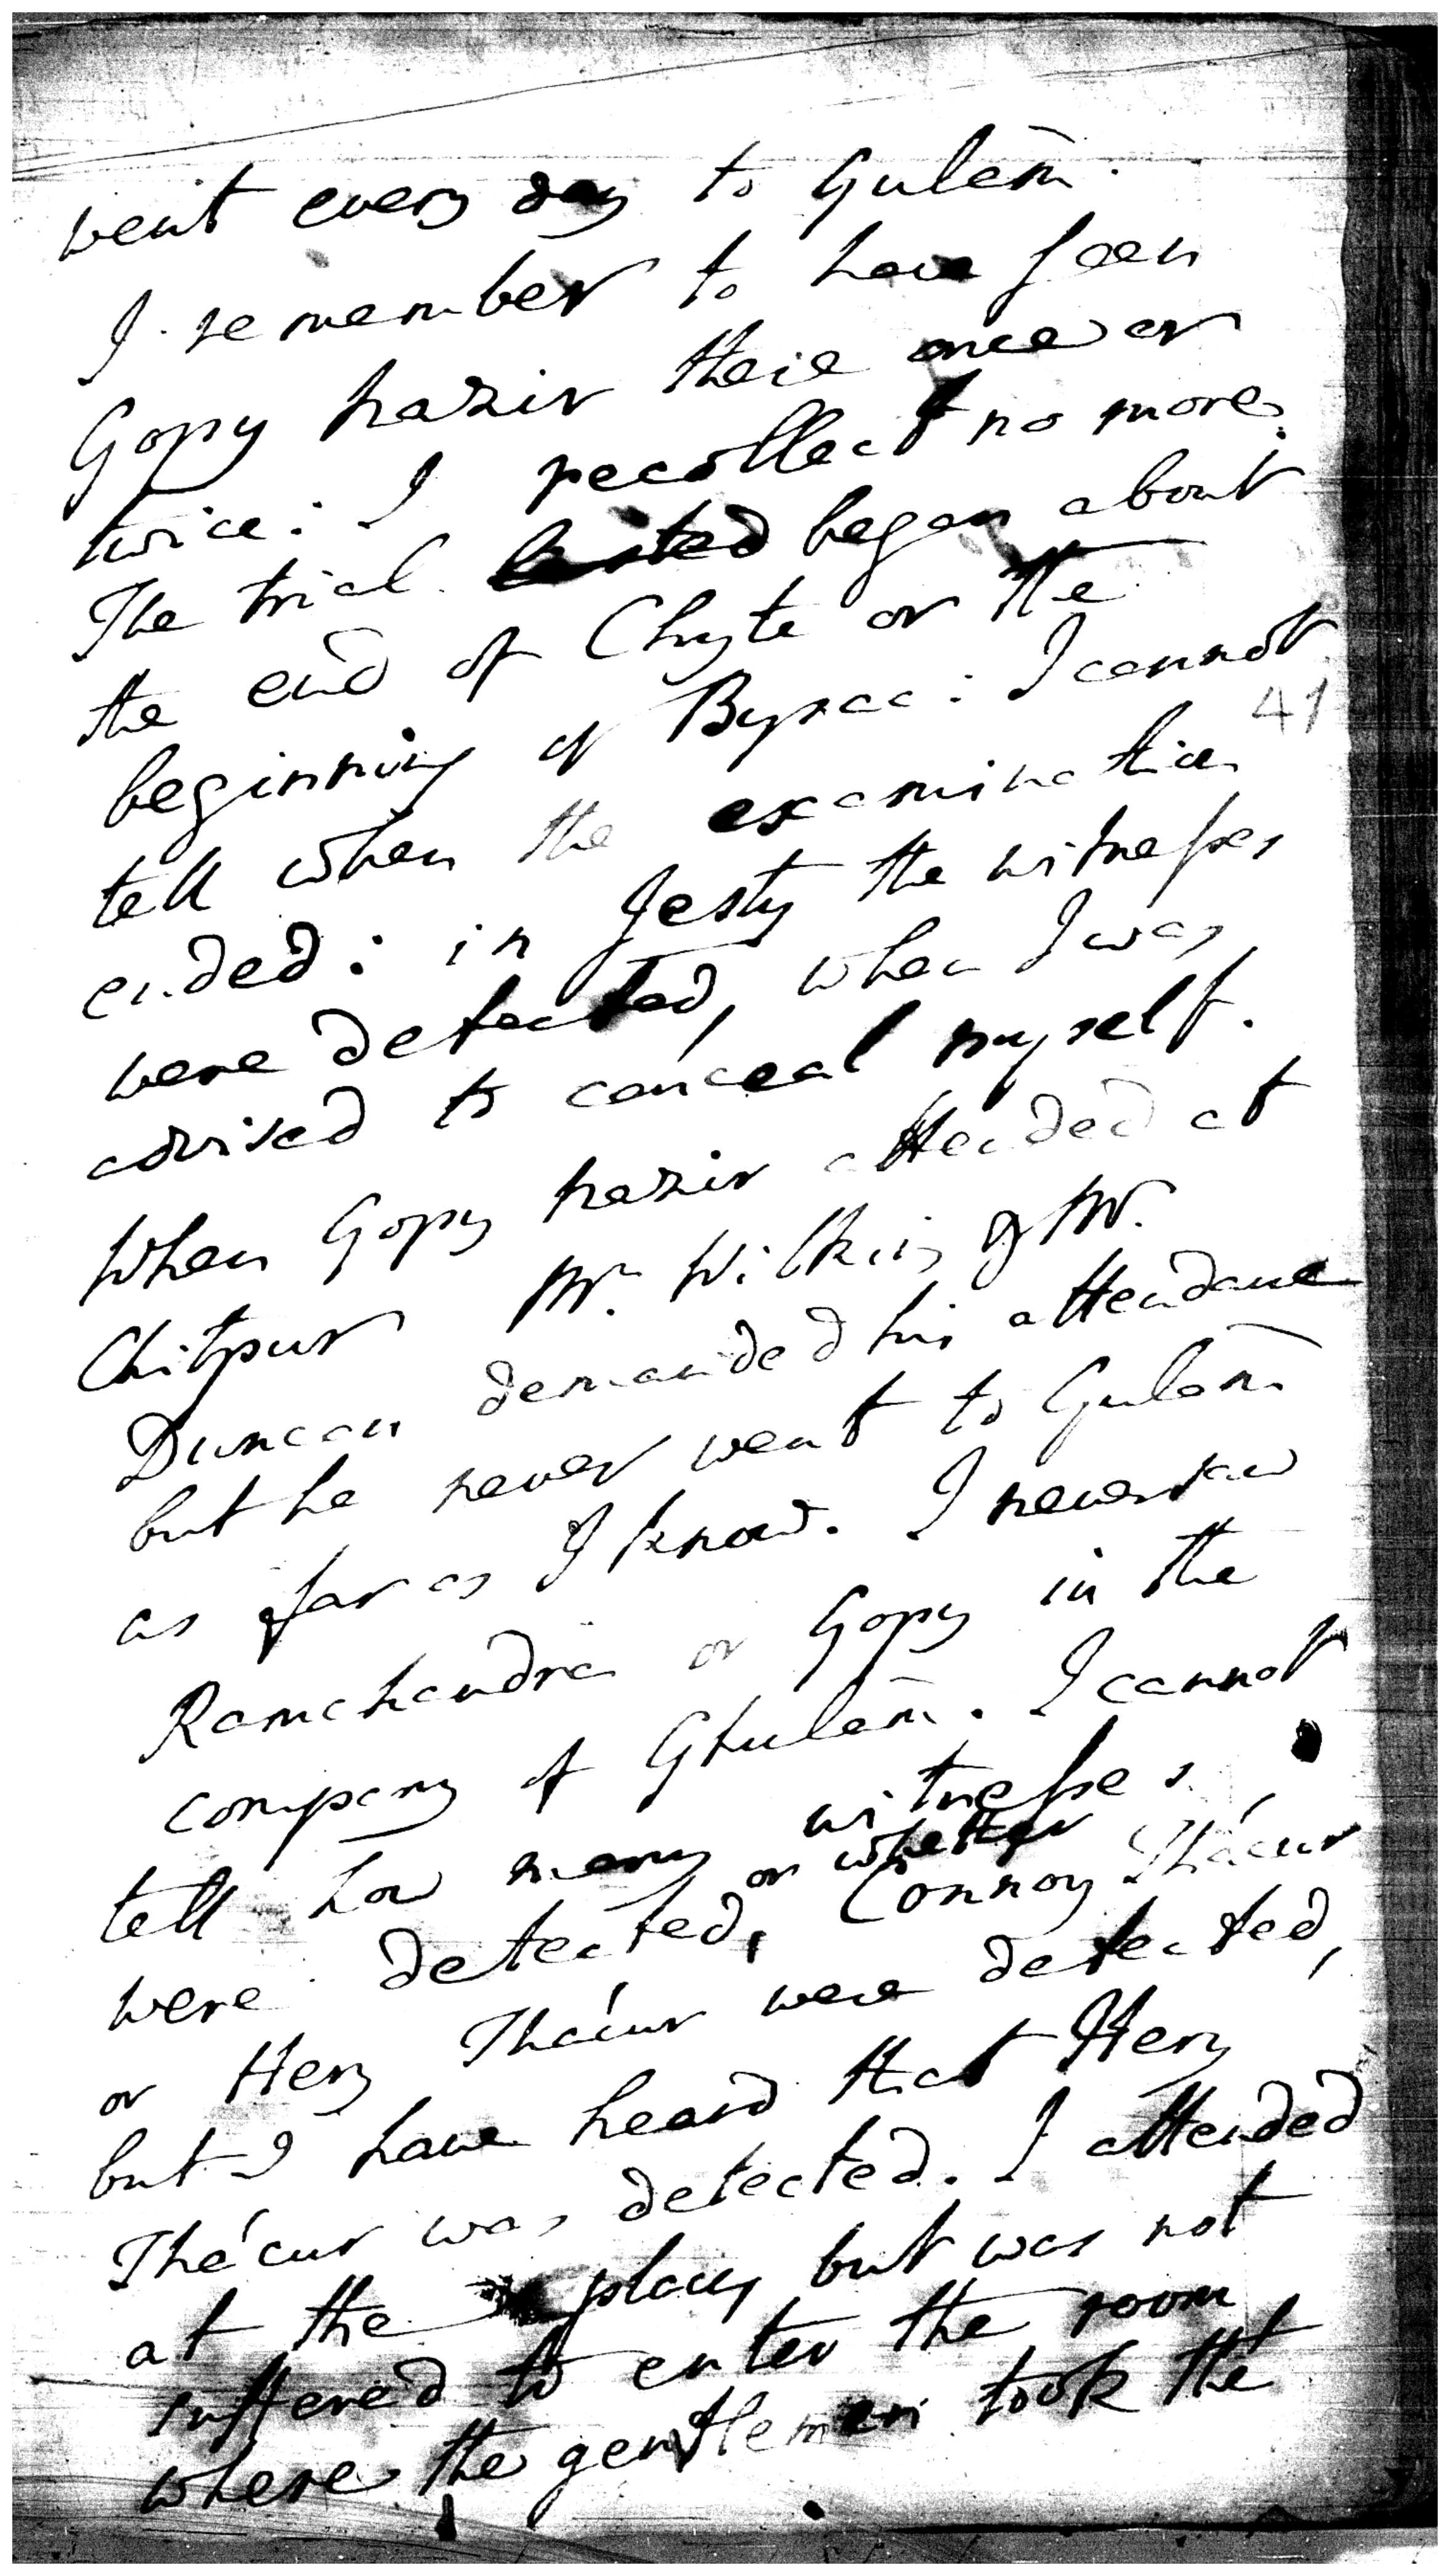 went every day to Gulām.
I remember to have seen
Gopy nazir there once or
twice: I recollect no more.
The trial lasted began about
the end of Chyte or the
beginning of Bysac: I cannot
41
tell when the examination
ended: in Jesty the witnesses
were detected, when I was
advised to conceal myself.
When Gopy nazir attended at
Chitpur Mr. Wilkins & Mr.
Duncan demanded his attendance
but he never went to Gulām
as far as I know. I never saw
Ramchandra or Gopy in the
company of Ghulām. I cannot
tell how many witnesses
were detected, or whether Connoy Thácur
or Hery Thácur were detected,
but I have heard that Hery
Thácur was detected. I attended
at the place, but was not
suffered to enter the room
where the gentlemen took the